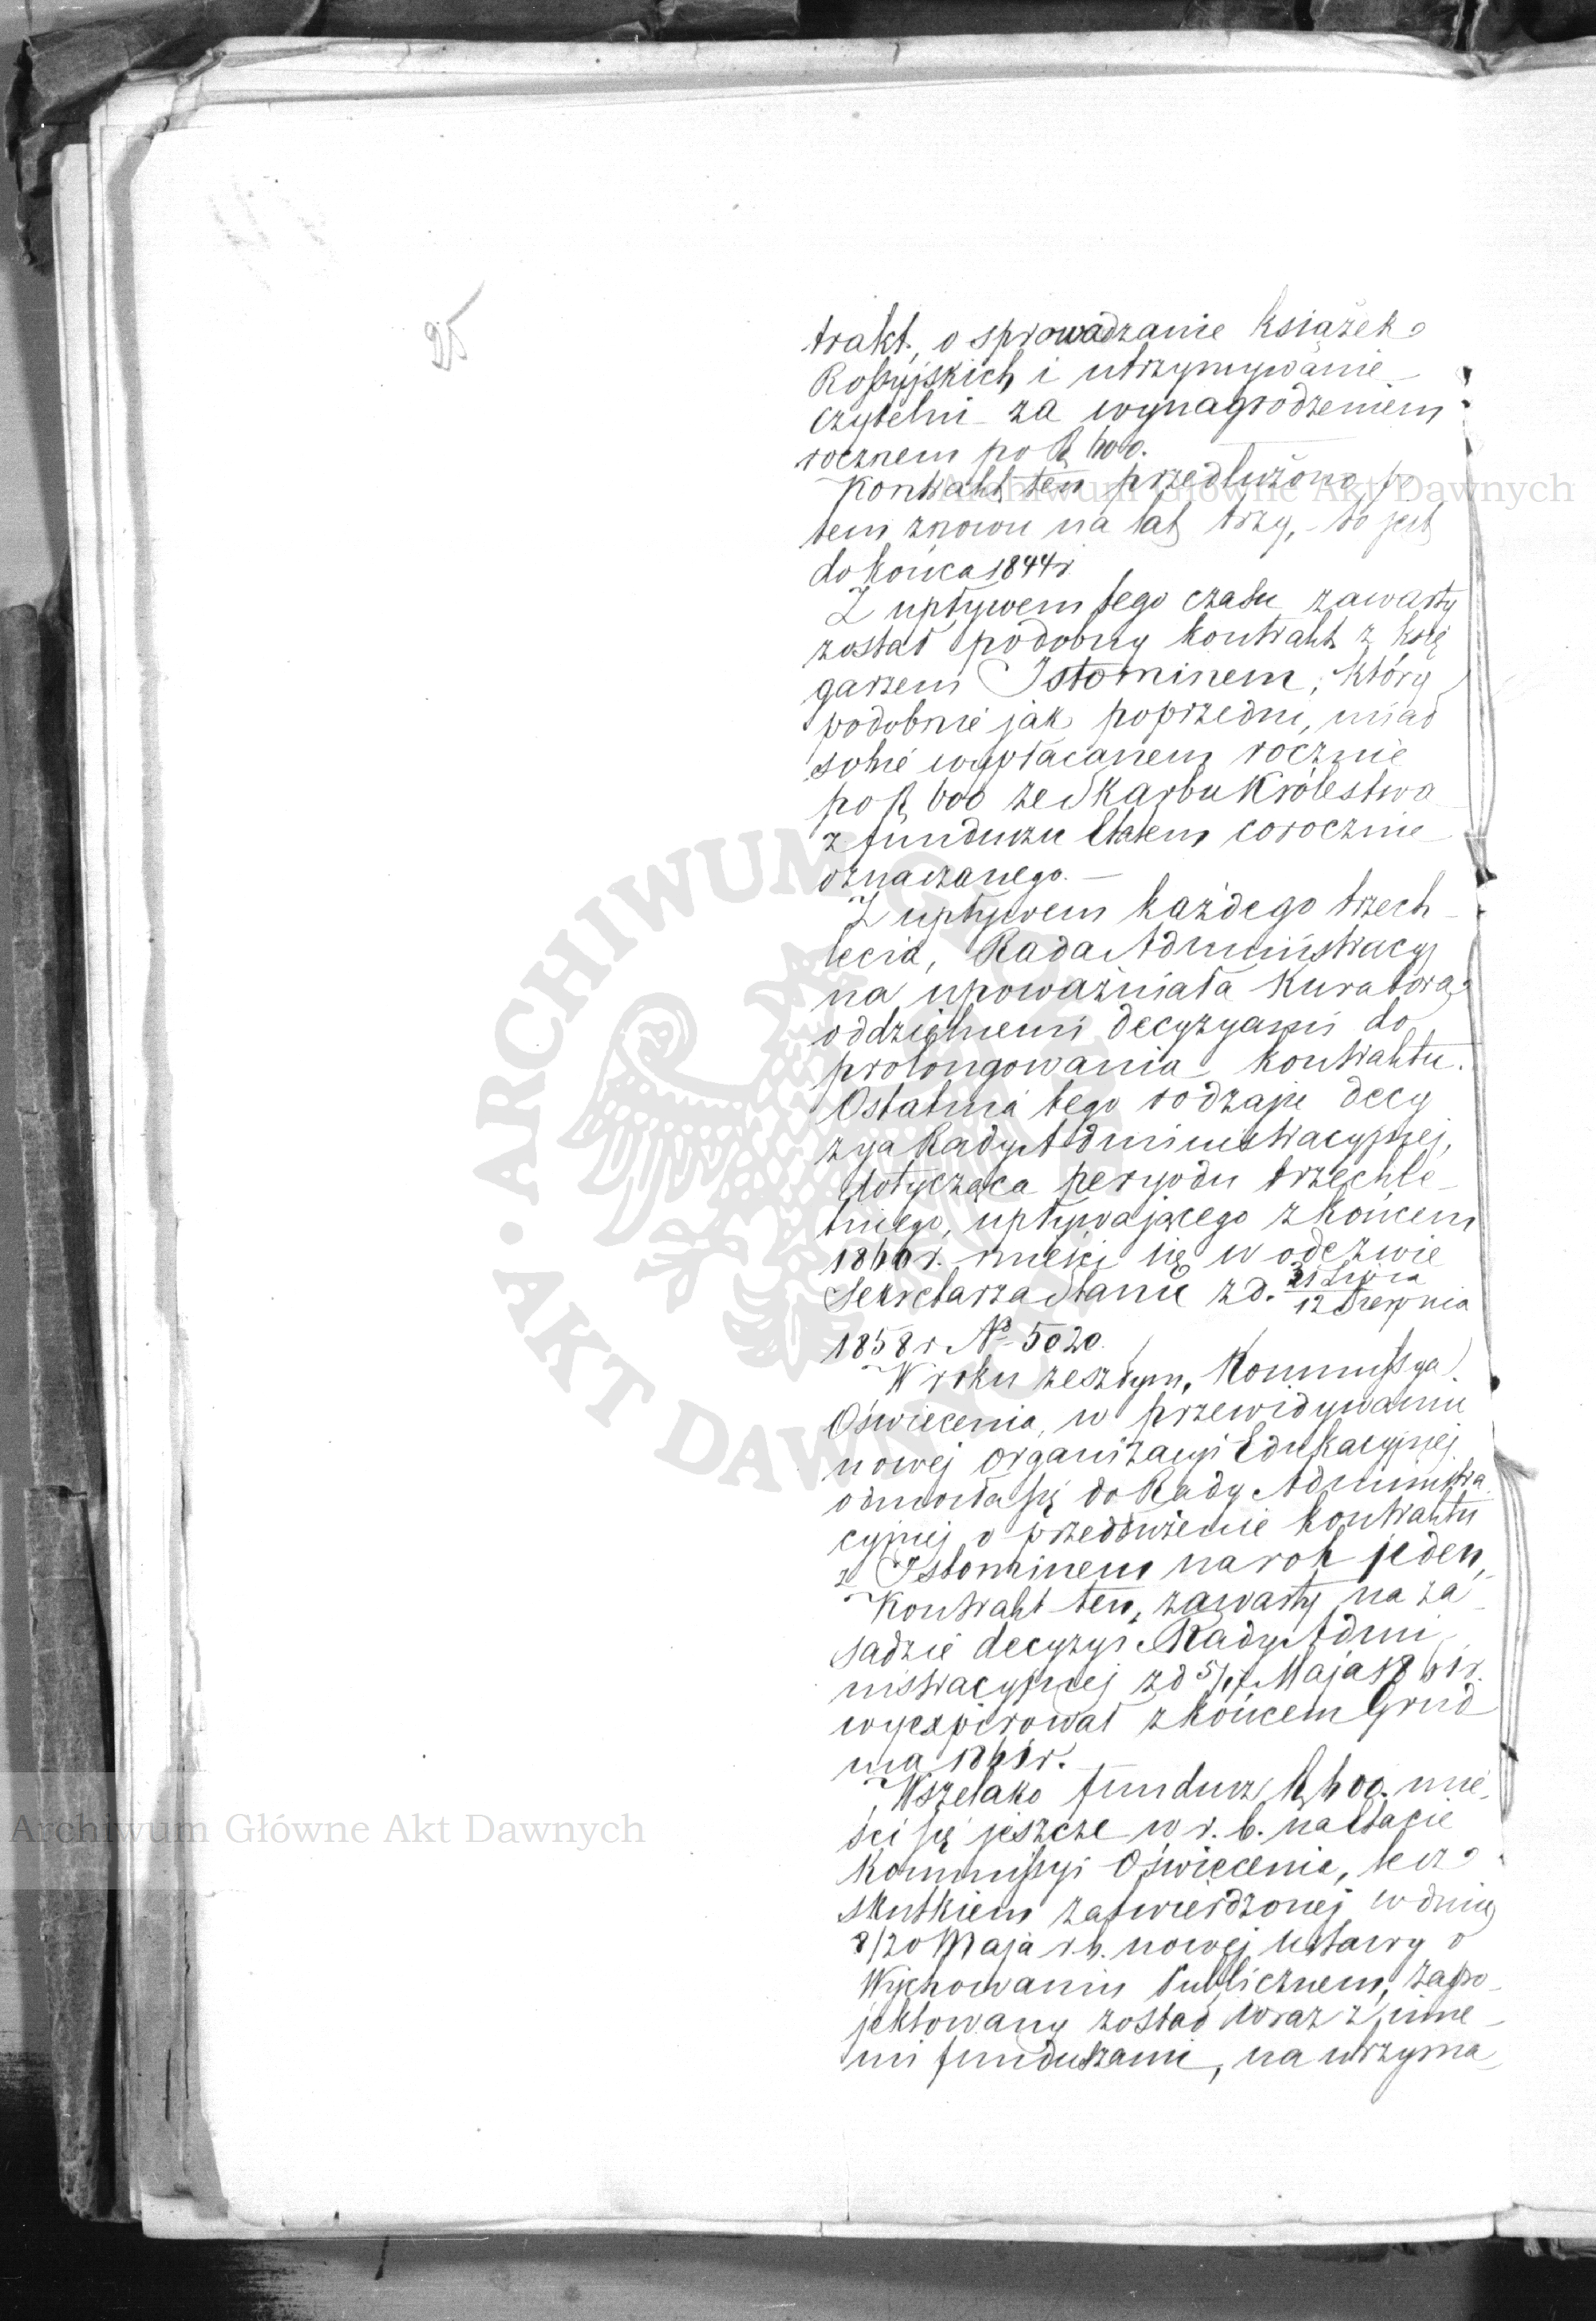 25
trakt, o sprowadzanie książek
Rossyjskich i utrzymywanie
czytelni za wynagrodzeniem
rocznem po R 600.
Kontrakt ten przedłużono po
tem znowu na lat trzy, to jest
do końca 1844 r
Z upływem tego czasu zawarty
został podobny kontrakt z księ
garzem Istominem, który
podobnie jak poprzedni, miał
sobie wypłacanem rocznie
po R 600 ze Skarbu Królestwa
z funduszu Etatem corocznie
oznaczanego. —
Z upływem każdego trzech
lecia, Rada Administracyj
na upoważniała Kuratora
oddzielnemi decyzyami do
prolongowania kontraktu.
Ostatnia tego rodzaju decy
zya Rady Administracyjnej,
dotycząca peryodu trzechle-
tniego, upływającego z końcem
1860 r. mieści się w odezwie
Sekretarza Stanu z d. 31 Lipca
12 Sierpnia
1858 r No 5020.
W roku zeszłym, Kommissya
Oświecenia, w przewidywaniu
nowej organizacyi Edukacyjnej
odniosła się do Rady Administra
cyjnej o przedłużenie kontraktu
z Istominem na rok jeden,
Kontrakt ten, zawarty na za
sadzie decyzyi Rady Admi
nistracyjnej z d 5/17 Maja 1861 r.
wyexpirował z końcem Grud
nia 1861 r.
Wszelako fundusz R 600. mie-
ści się jeszcze w r. b. na Etacie
Kommissyi Oświecenia, lecz
skutkiem zatwierdzonej w dniu
8/20 Maja r. b. nowej Ustawy o
Wychowaniu Publicznem, zapro-
jektowany został wraz z inne-
mi funduszami, na utrzyma
Archiwum Główne Akt Dawnych
Archiwum Główne Akt Dawnych
ARCHIWUM GŁÓWNE
AKT DAWNYCH